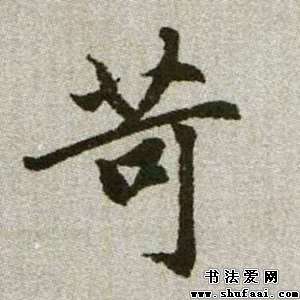 苛
书法爱网
www.shufaai.com